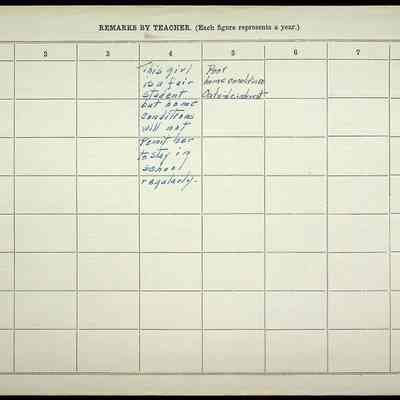 REMARKS BY TEACHER. (Each figure represents a year.)
2 3 4 5 6 7
This girl
is a fair
student
but home
conditions
will not
permit her
to stay in
school
regularly.
Poor
home conditions
Outside interests